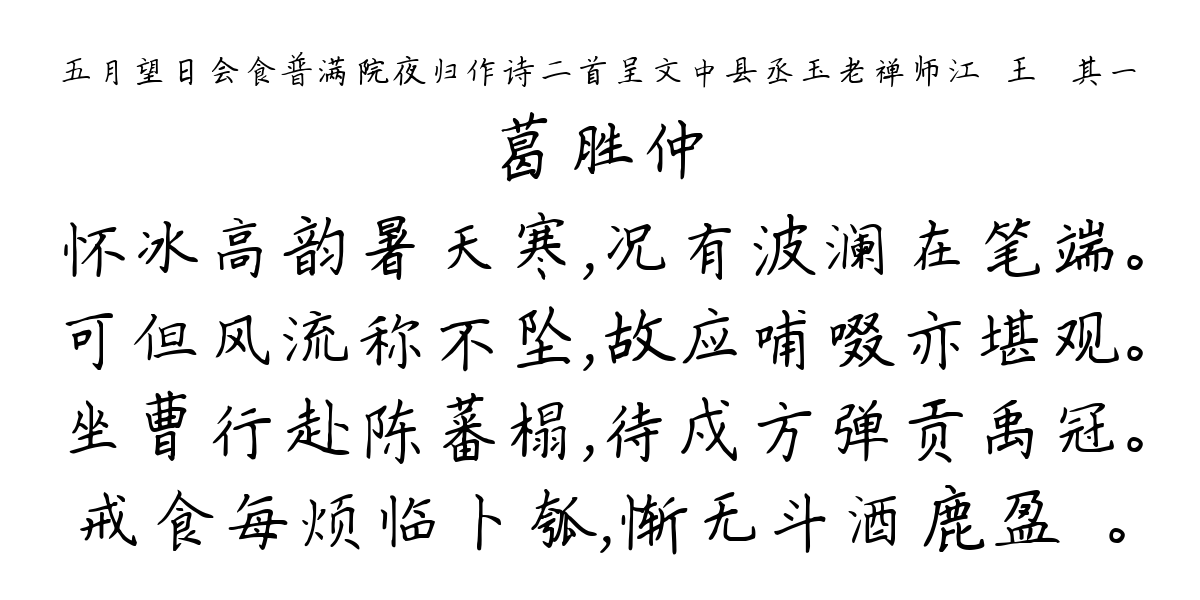 五月望日会食普满院夜归作诗二首呈文中县丞玉老禅师江 王 其一
葛胜仲
怀冰高韵暑天寒,况有波澜在笔端。
可但风流称不坠,故应哺啜亦堪观。
坐曹行赴陈蕃榻,待戍方弹贡禹冠。
戒食每烦临卜瓠,惭无斗酒鹿盈 。